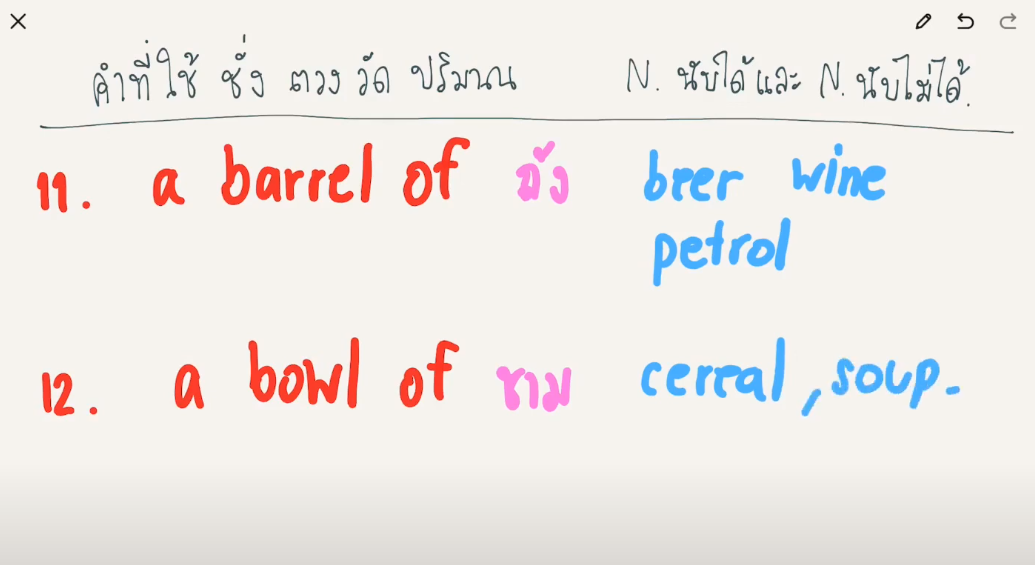 คำที่ใช้ ชั่ง ตวง วัด ปริมาณ N. นับได้ และ N. นับไม่ได้.
11. a barrel of ถัง beer wine
petrol
12. a bowl of ชาม cereal, soup.